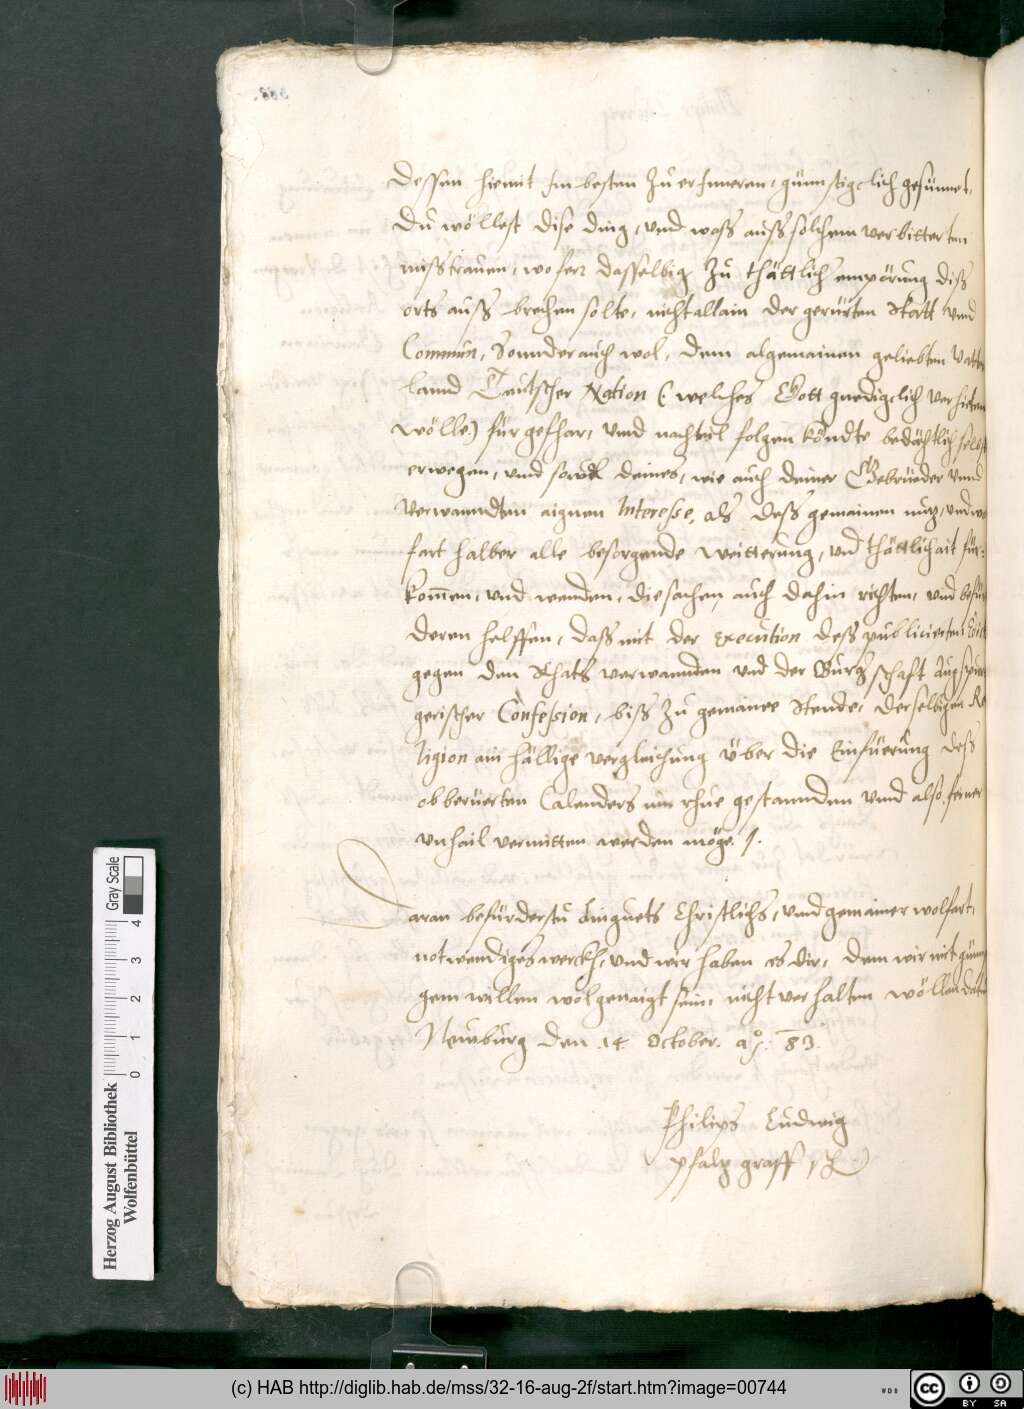 dessen hiemit Im besten zu erInneren, günnstigclich gesünnet,
Du wöllest dise ding, vnd wass auss solchem verbitterten
misstrauen, wo fern dasselbig zu thättlicher empörung diss
orts auss brechen solte, nicht allain der gerürten Statt vnnd
Commun, Sonnder auch wol, dem algemainen geliebten Vatter
lannd Teutscher Nation (welches Gott gnedigclich verhieten
wölle) für gefhar, vnnd nachteil folgen köndte bedächtlich selbst
erwegen, vnnd sowol deines, wie auch deiner Gebrüeder vnnd
verwanndten aignen Interesse, als dess gemainen nutz, vnd wol
fart halber alle besorgende weitterung, vnd thättlichait für-
kommen, vnd wenden, die sachen auch dahin richten, vnd befür
deren helffen, dass mit der execution dess publicierten Edict
gegen den Rhats verwannden vnd der Burgerschafft Augspur
gerischer Confession, biss zu gemainer Stende, derselbigen Re
ligion ain hällige vergleichung über die Einfüerung dess
obberüerten Calenders inn rhue gestannden vnnd also ferner
vnhail vermitten werden möge.
Daran befürderstu ain guets Christlichs, vnnd gemainer wolfart,
notwendiges werckh, vnd wir haben es dir, dem wir mit günsti
gem willen wolgenaigt sein, nicht verhalten wöllen, datum
Newburg den .14. October. a.º 83.
Philips Ludwig
pfaltzgraff
388.
Herzog August Bibliothek
Wolfenbüttel
0 1 2 3 4
Gray Scale
(c) HAB http://diglib.hab.de/mss/32-16-aug-2f/start.htm?image=00744
WDB
cc BY SA